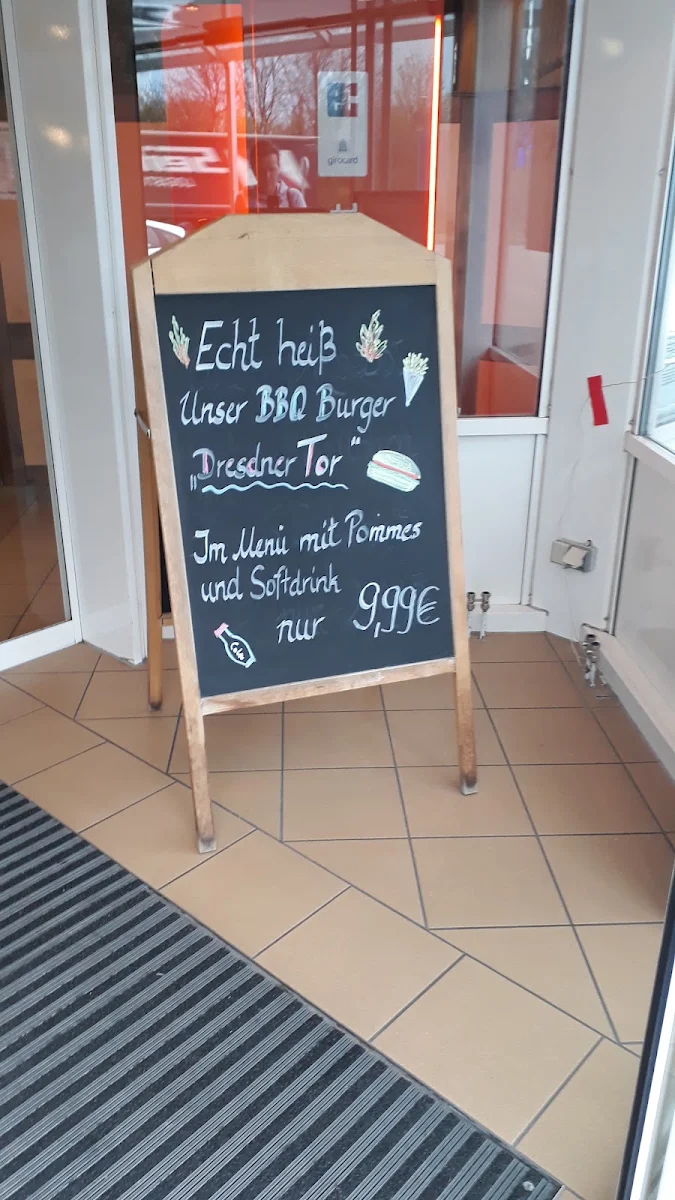 girocard
Echt heiß
Unser BBQ Burger
„Dresdner Tor“
Im Menü mit Pommes
und Softdrink
nur 9,99€
Cola